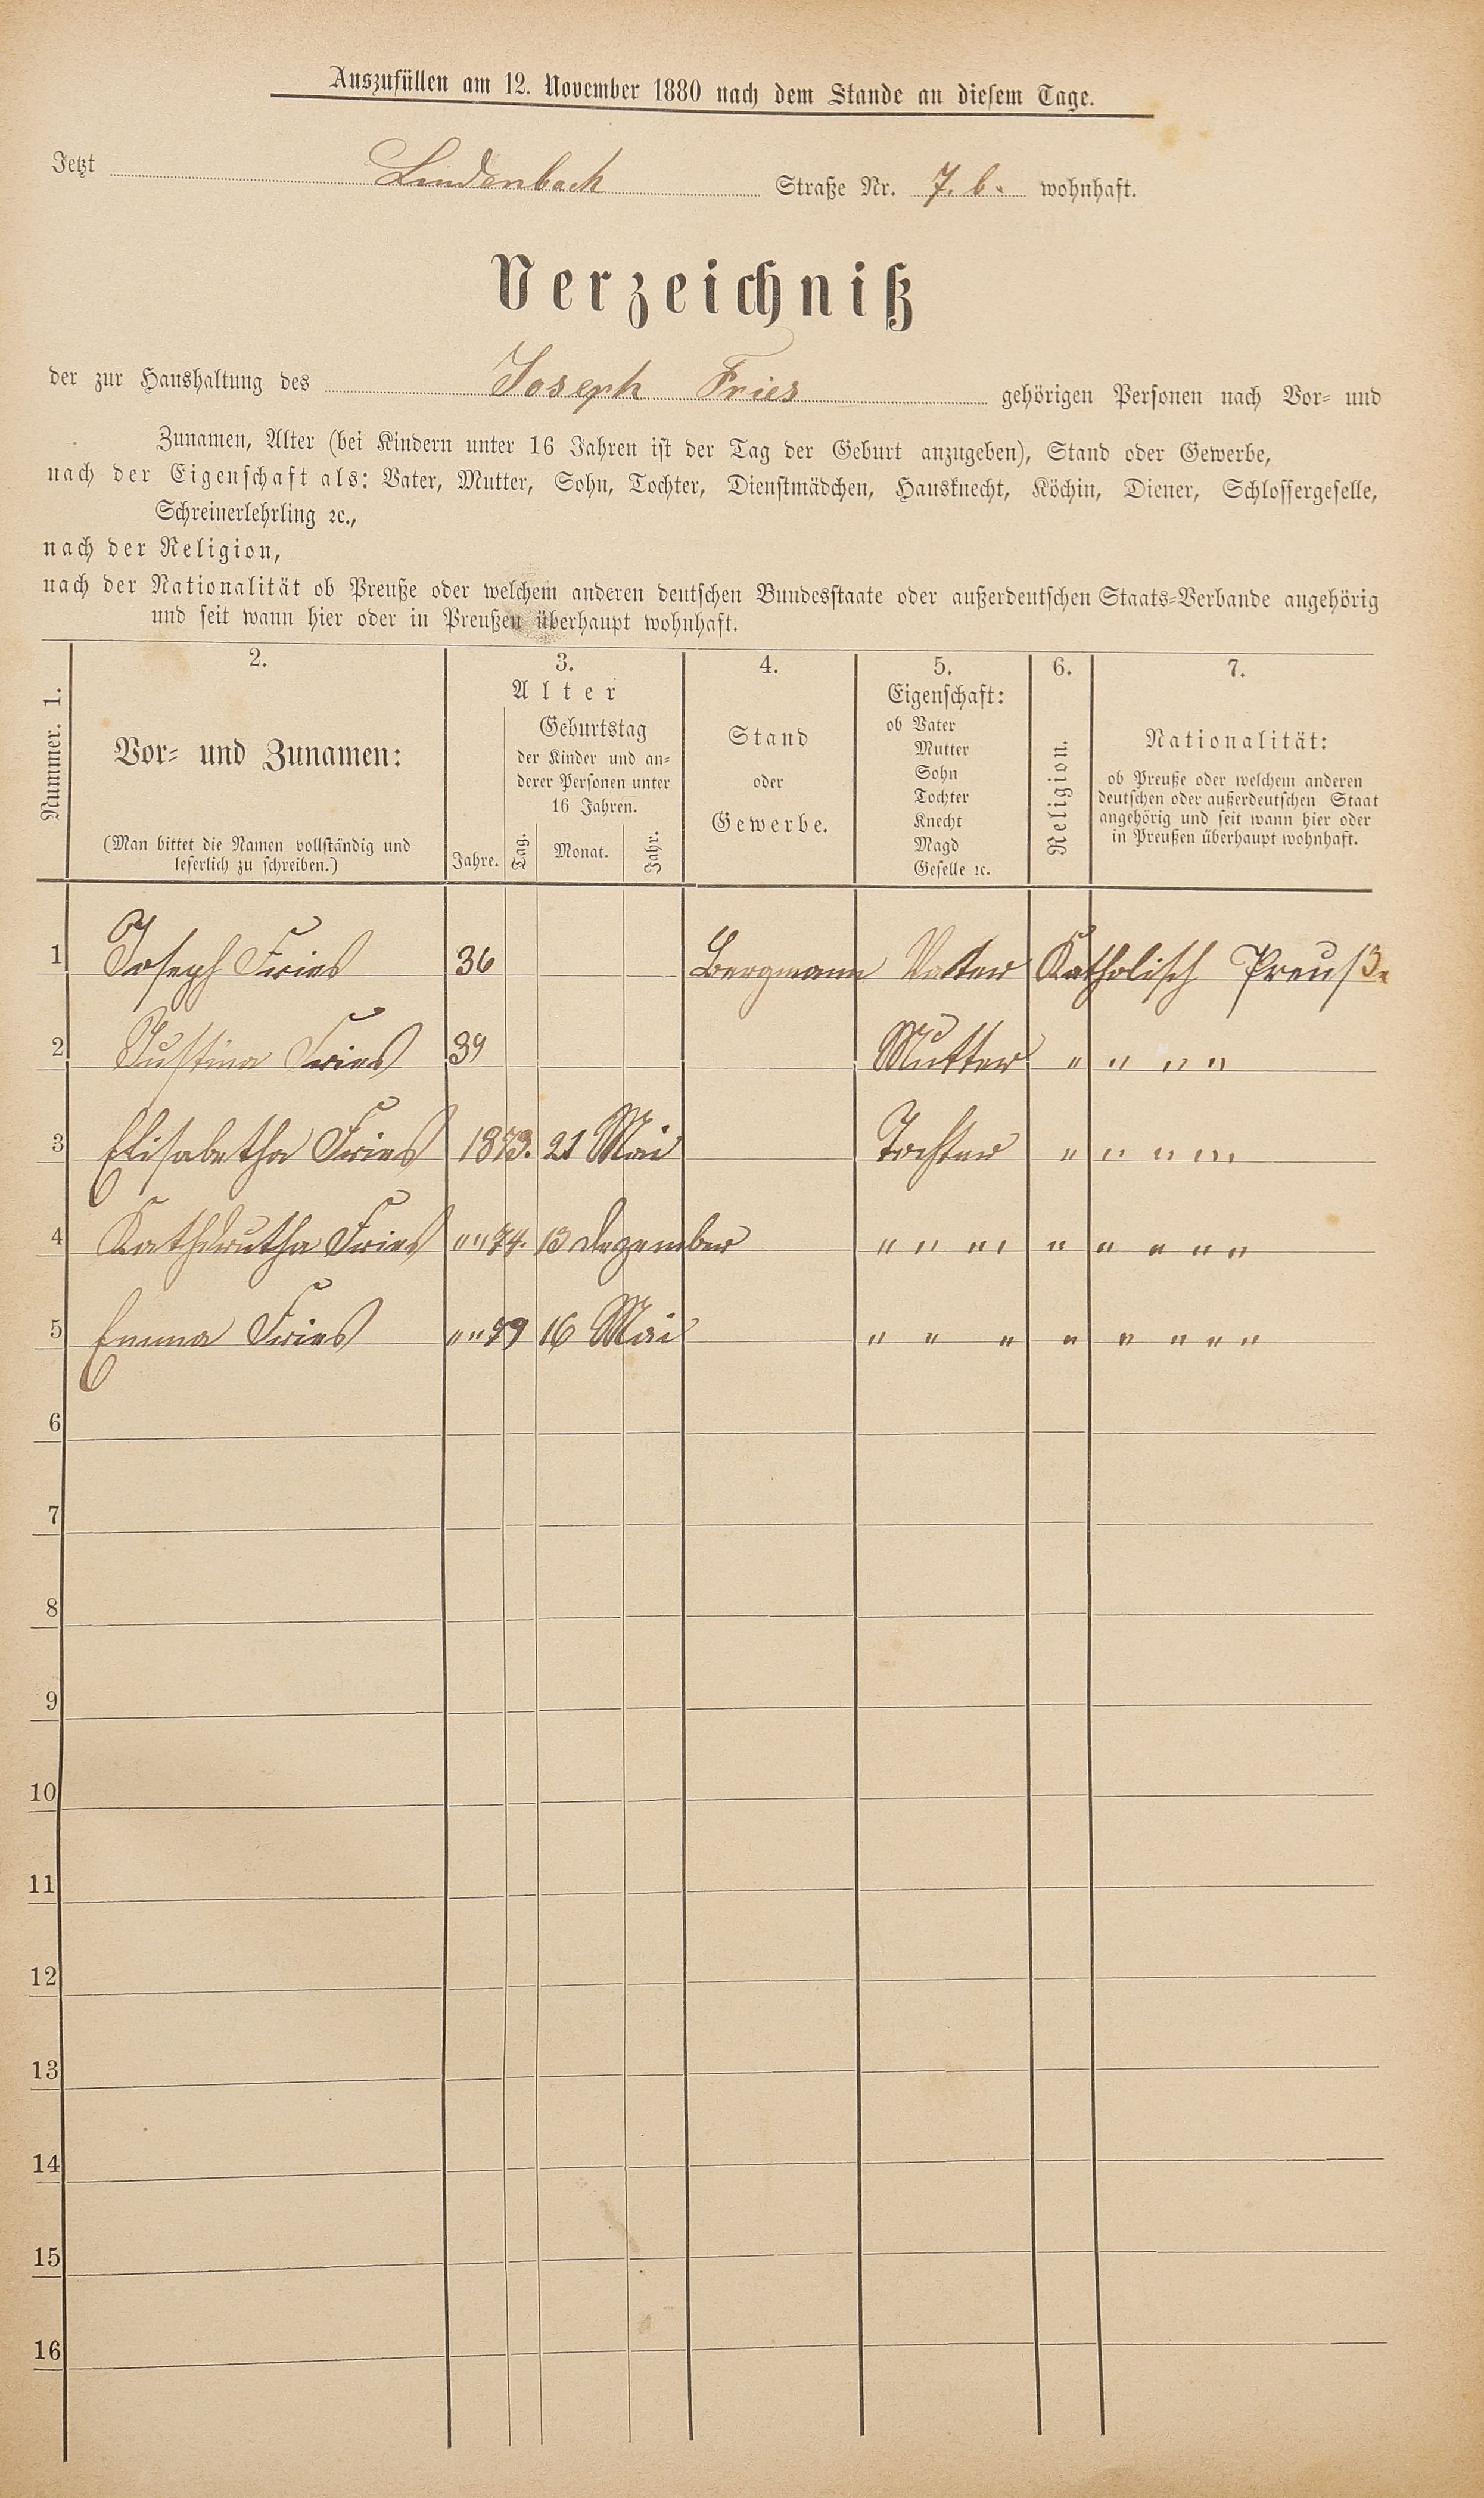 Auszufüllen am 12. November 1880 nach dem Stande an diesem Tage.
Jetzt Lindenbach Straße Nr. 7. b. wohnhaft.
Verzeichniß
der zur Haushaltung des Joseph Fries gehörigen Personen nach Vor- und
Zunamen, Alter (bei Kindern unter 16 Jahren ist der Tag der Geburt anzugeben), Stand oder Gewerbe,
nach der Eigenschaft als: Vater, Mutter, Sohn, Tochter, Dienstmädchen, Hausknecht, Köchin, Diener, Schlossergeselle,
Schreinerlehrling ꝛc.,
nach der Religion,
nach der Nationalität ob Preuße oder welchem anderen deutschen Bundesstaate oder außerdeutschen Staats-Verbande angehörig
und seit wann hier oder in Preußen überhaupt wohnhaft.
Nummer. 1.
2.
Vor- und Zunamen:
(Man bittet die Namen vollständig und
leserlich zu schreiben.)
3.
Alter
Jahre.
Geburtstag
der Kinder und an-
derer Personen unter
16 Jahren.
Tag. Monat. Jahr.
4.
Stand
oder
Gewerbe.
5.
Eigenschaft:
ob Vater
Mutter
Sohn
Tochter
Knecht
Magd
Geselle ꝛc.
6.
Religion.
7.
Nationalität:
ob Preuße oder welchem anderen
deutschen oder außerdeutschen Staat
angehörig und seit wann hier oder
in Preußen überhaupt wohnhaft.
1 Joseph Fries 36 Bergmann Vatter Katholisch Preuße
2 Justina Fries 39 Mutter " " " "
3 Elisabetha Fries 1873. 21 Mai Tochter " " " " "
4 Fries " " 74. 13 dezember " " " " " " " " "
5 Emma Fries " " 79 16 Mai " " " " " " " "
6
7
8
9
10
11
12
13
14
15
16